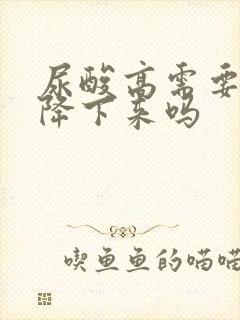 尿酸高需要
降下来吗
喫鱼鱼的喵喵